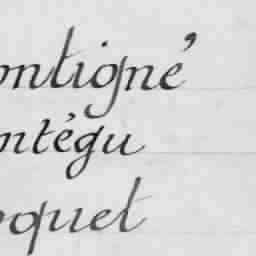 ontigné
ntégu
oquet